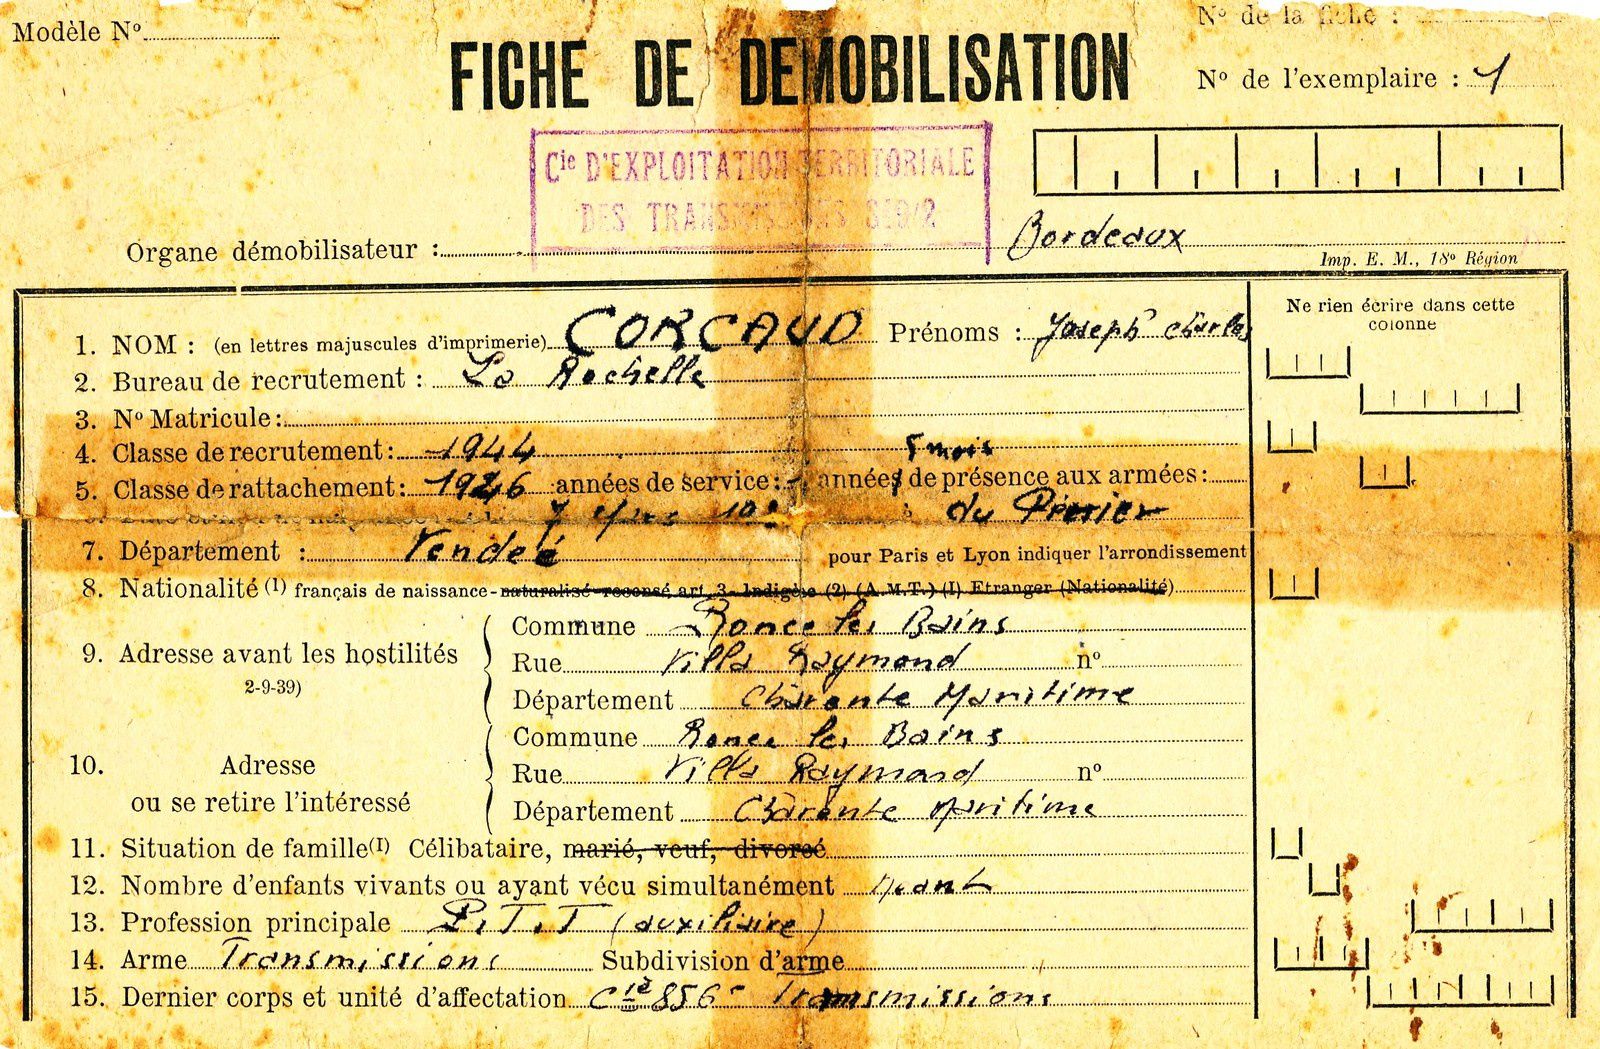 Modèle No
No de la fiche :
FICHE DE DEMOBILISATION
No de l'exemplaire : 1
Cie D'EXPLOITATION TERRITORIALE
DES TRANSMISSIONS
Organe démobilisateur : Bordeaux
Imp. E. M., 18e Région
Ne rien écrire dans cette colonne
1. NOM : (en lettres majuscules d'imprimerie) CORCAUD Prénoms : Joseph Charles
2. Bureau de recrutement : La Rochelle
3. No Matricule :
4. Classe de recrutement : 1944
5 mois
5. Classe de rattachement : 1946 années de service : années de présence aux armées :
7 du Perrier
7. Département : Vendeé pour Paris et Lyon indiquer l'arrondissement
8. Nationalité (1) français de naissance - naturalisé recensé art. 3 - Indigène (2) (A.M.T.) (I) Etranger (Nationalité)
9. Adresse avant les hostilités
2-9-39)
Commune Ronce les Bains
Rue Villa Raymond no
Département Charente Maritime
10. Adresse
ou se retire l'intéressé
Commune Ronce les Bains
Rue Villa Raymond no
Département Charente Maritime
11. Situation de famille (I) Célibataire, marié, veuf, divorcé
12. Nombre d'enfants vivants ou ayant vécu simultanément Néant
13. Profession principale P.T.T (auxiliaire)
14. Arme Transmissions Subdivision d'arme
15. Dernier corps et unité d'affectation Cie 856e Transmissions